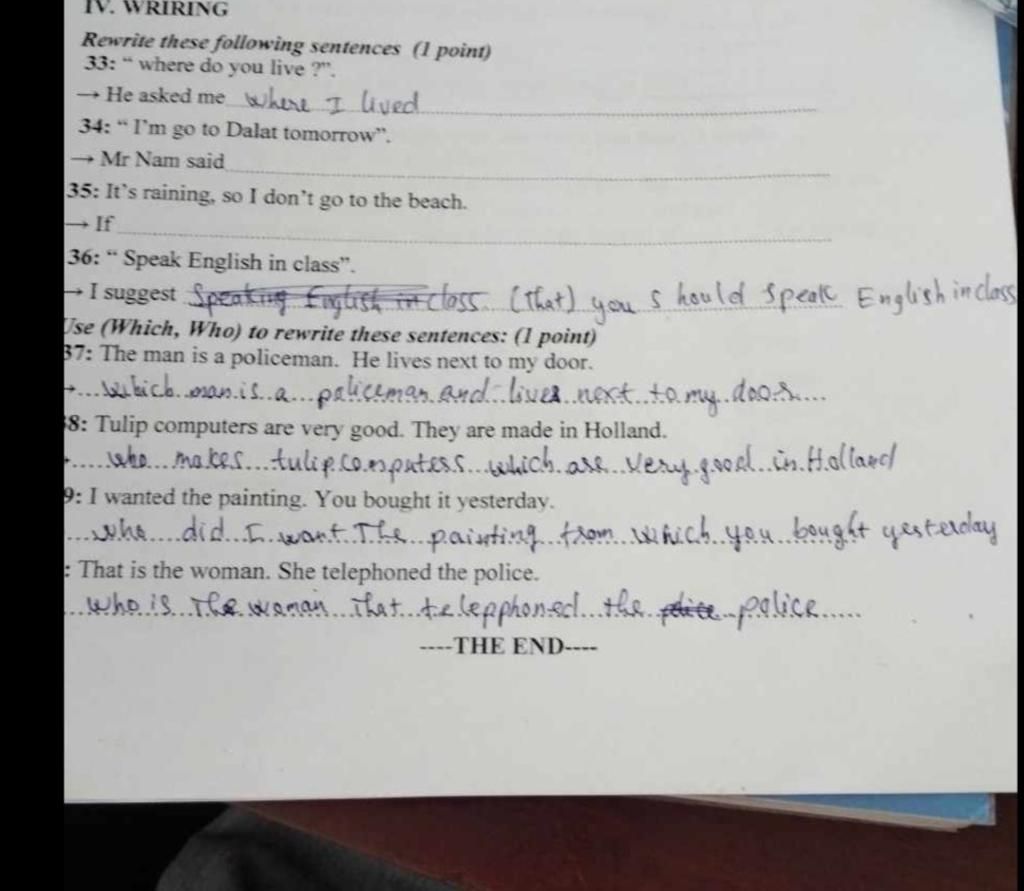 IV. WRIRING
Rewrite these following sentences (1 point)
33: “ where do you live ?”.
→ He asked me where I lived
34: “ I'm go to Dalat tomorrow”.
→ Mr Nam said
35: It's raining, so I don't go to the beach.
→ If
36: “ Speak English in class”.
→ I suggest Speaking English in class. (that) you should speak English in class
Use (Which, Who) to rewrite these sentences: (1 point)
37: The man is a policeman. He lives next to my door.
→ which man is a policeman and lives next to my door
38: Tulip computers are very good. They are made in Holland.
who makes tulip computers which are very good in Holland
9: I wanted the painting. You bought it yesterday.
who did I want The painting from which you bought yesterday
: That is the woman. She telephoned the police.
who is The woman That telepphoned the police police
----THE END----